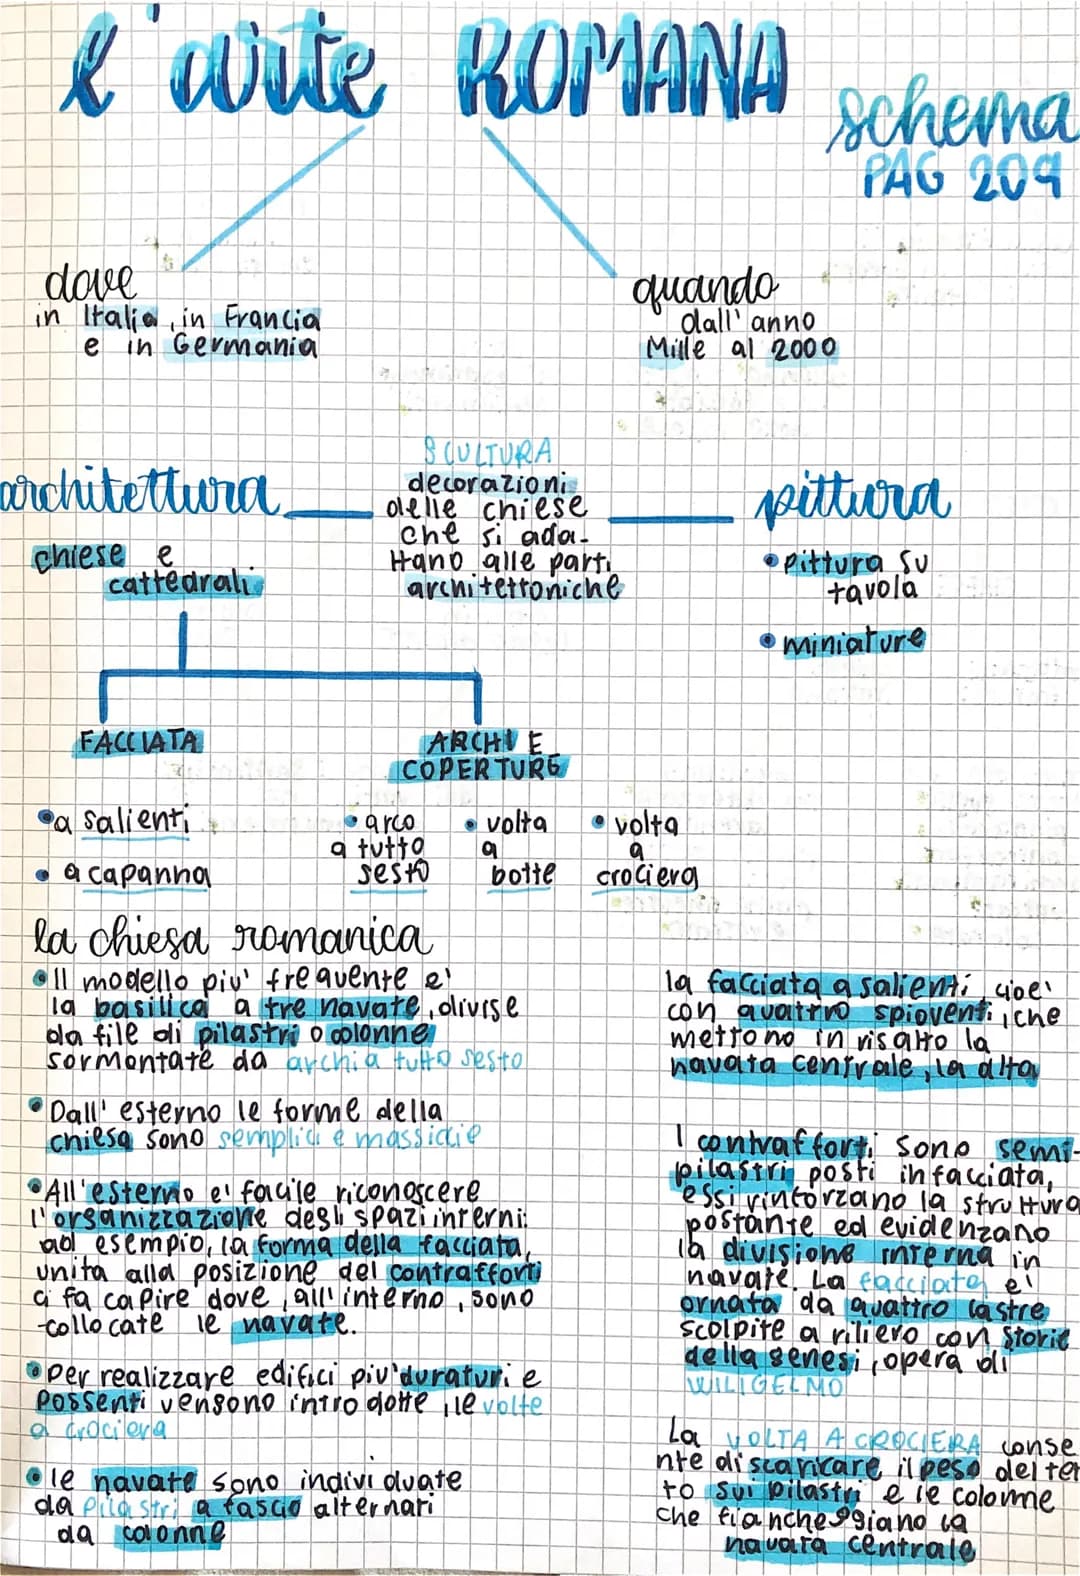 l'arte ROMANA
schema
PAG 209
dove
in Italia, in Francia
e in Germania
quando
dall'anno
Mille al 2000
architettura
chiese e
cattedrali
SCULTURA
decorazioni
delle chiese
che si ada-
ttano alle parti
architettoniche
pittura
• pittura su
tavola
• miniature
FACCIATA
ARCHI E
COPERTURE
• a salienti
• a capanna
• arco
a tutto
sesto
• volta
a
botte
• volta
a
crociera
la chiesa romanica
• Il modello piu' frequente e'
la basilica a tre navate, divise
da file di pilastri o colonne
sormontate da archi a tutto sesto
• Dall'esterno le forme della
chiesa sono semplici e massicie
• All'esterno e' facile riconoscere
l'organizzazione degli spazi interni:
ad esempio, la forma della facciata,
unita alla posizione dei contrafforti
ci fa capire dove, all'interno, sono
collocate le navate.
• Per realizzare edifici piu' duraturi e
possenti vengono introdotte, le volte
a crociera
• le navate sono individuate
da pilastri a fascio alternati
da colonne
la facciata a salienti, cioe'
con quattro spioventi, che
mettono in risalto la
navata centrale, la alta
I contrafforti sono semi-
pilastri posti in facciata,
essi rinforzano la struttura
portante ed evidenzano
la divisione interna in
navate. La facciata e'
ornata da quattro lastre
scolpite a riliero con storie
della genesi, opera di
WILIGELMO
La VOLTA A CROCIERA conse
nte di scaricare il peso del tet
to sui pilastri e le colonne
che fiancheggiano la
navata centrale